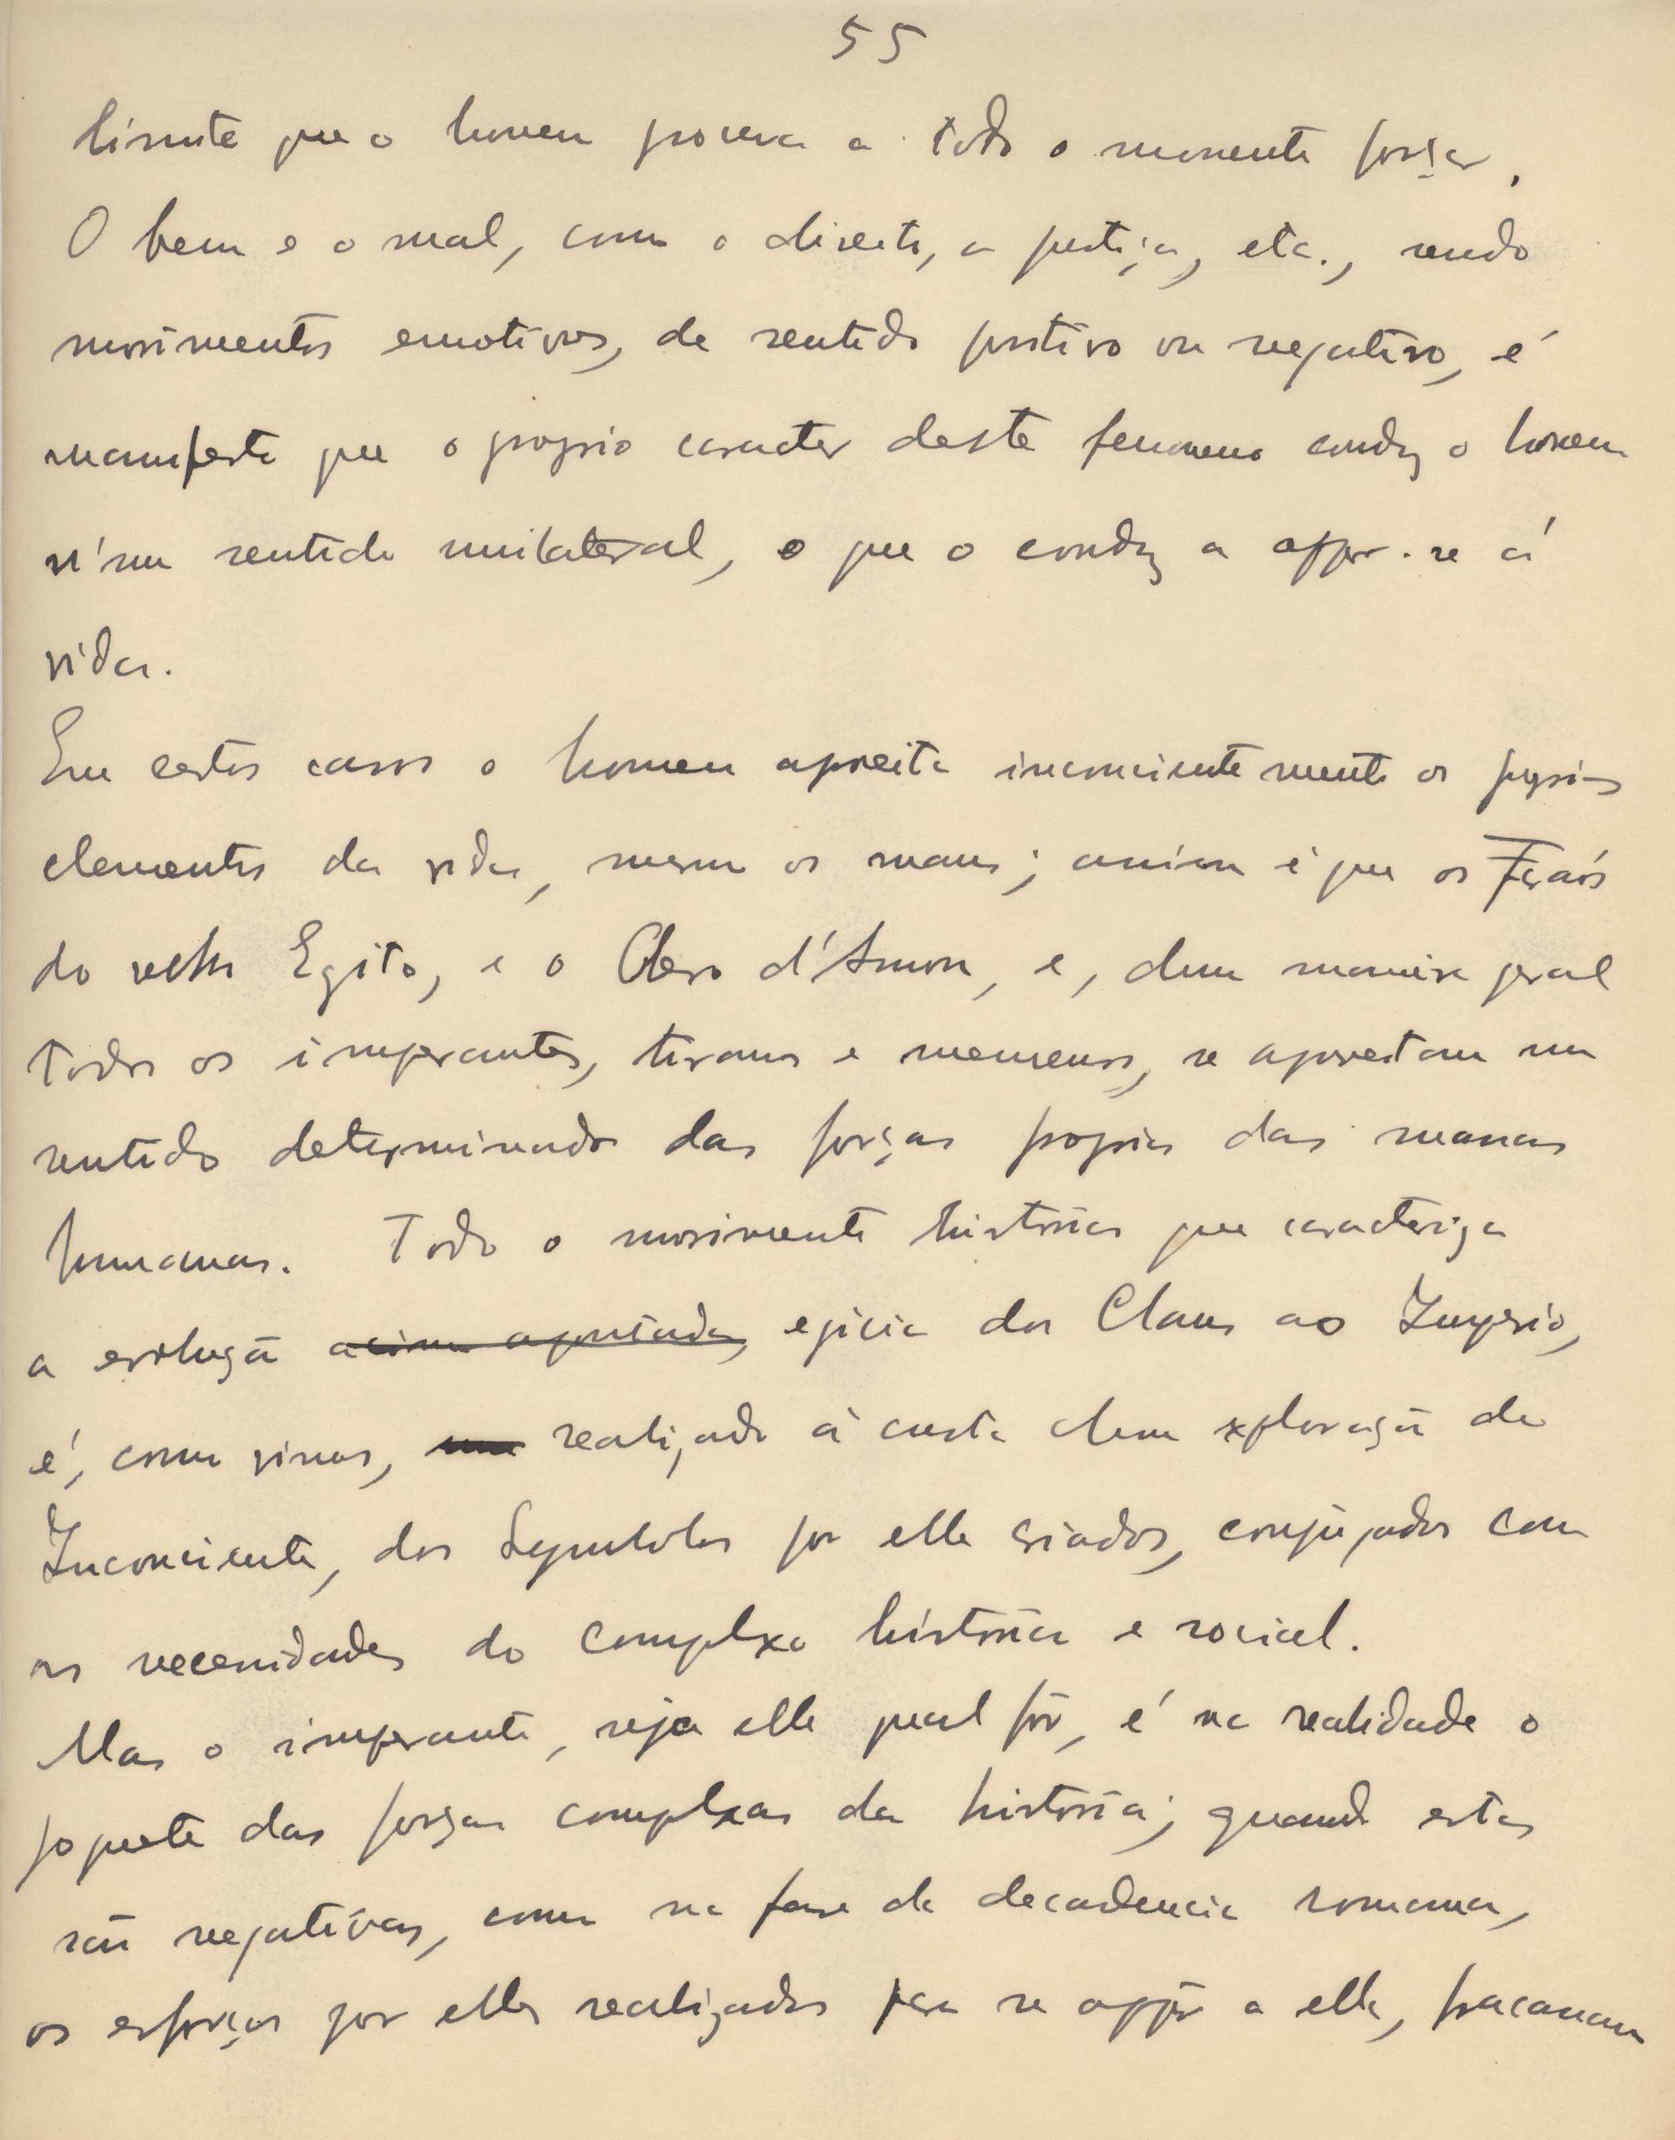 55
limite que o homem procura a todo o momento forçar.
O bem e o mal, como o direito, a justiça, etc., sendo
movimentos emotivos, de sentido positivo ou negativo, é
manifesto que o proprio caracter deste fenomeno conduz o homem
n'um sentido unilateral, o que o conduz a oppor-se á
vida.
Em certos casos o homem aproveita inconcientemente os proprios
elementos da vida, mesmo os maus; assim é que os Faraós
do velho Egito, e o Clero d'Amon, e, dum maneira geral
todos os imperantes, tiranos e mecenas, se aproveitam num
sentido determinado das forças proprias das massas
humanas. Todo o movimento histórico que caracteriza
a evolução acima apontada, egícia dos Clans ao Império,
é, como vimos, uma realizado á custa duma exploração do
Inconciente, dos Symbolos por elle criados, conjugados com
as necessidades do complexo histórico e social.
Mas o imperante, seja elle qual fôr, é na realidade o
joguete das forças complexas da história; quando estas
são negativas, como na fase de decadencia romana,
os esforços por elles realizados para se oppôr a ella, fracassam